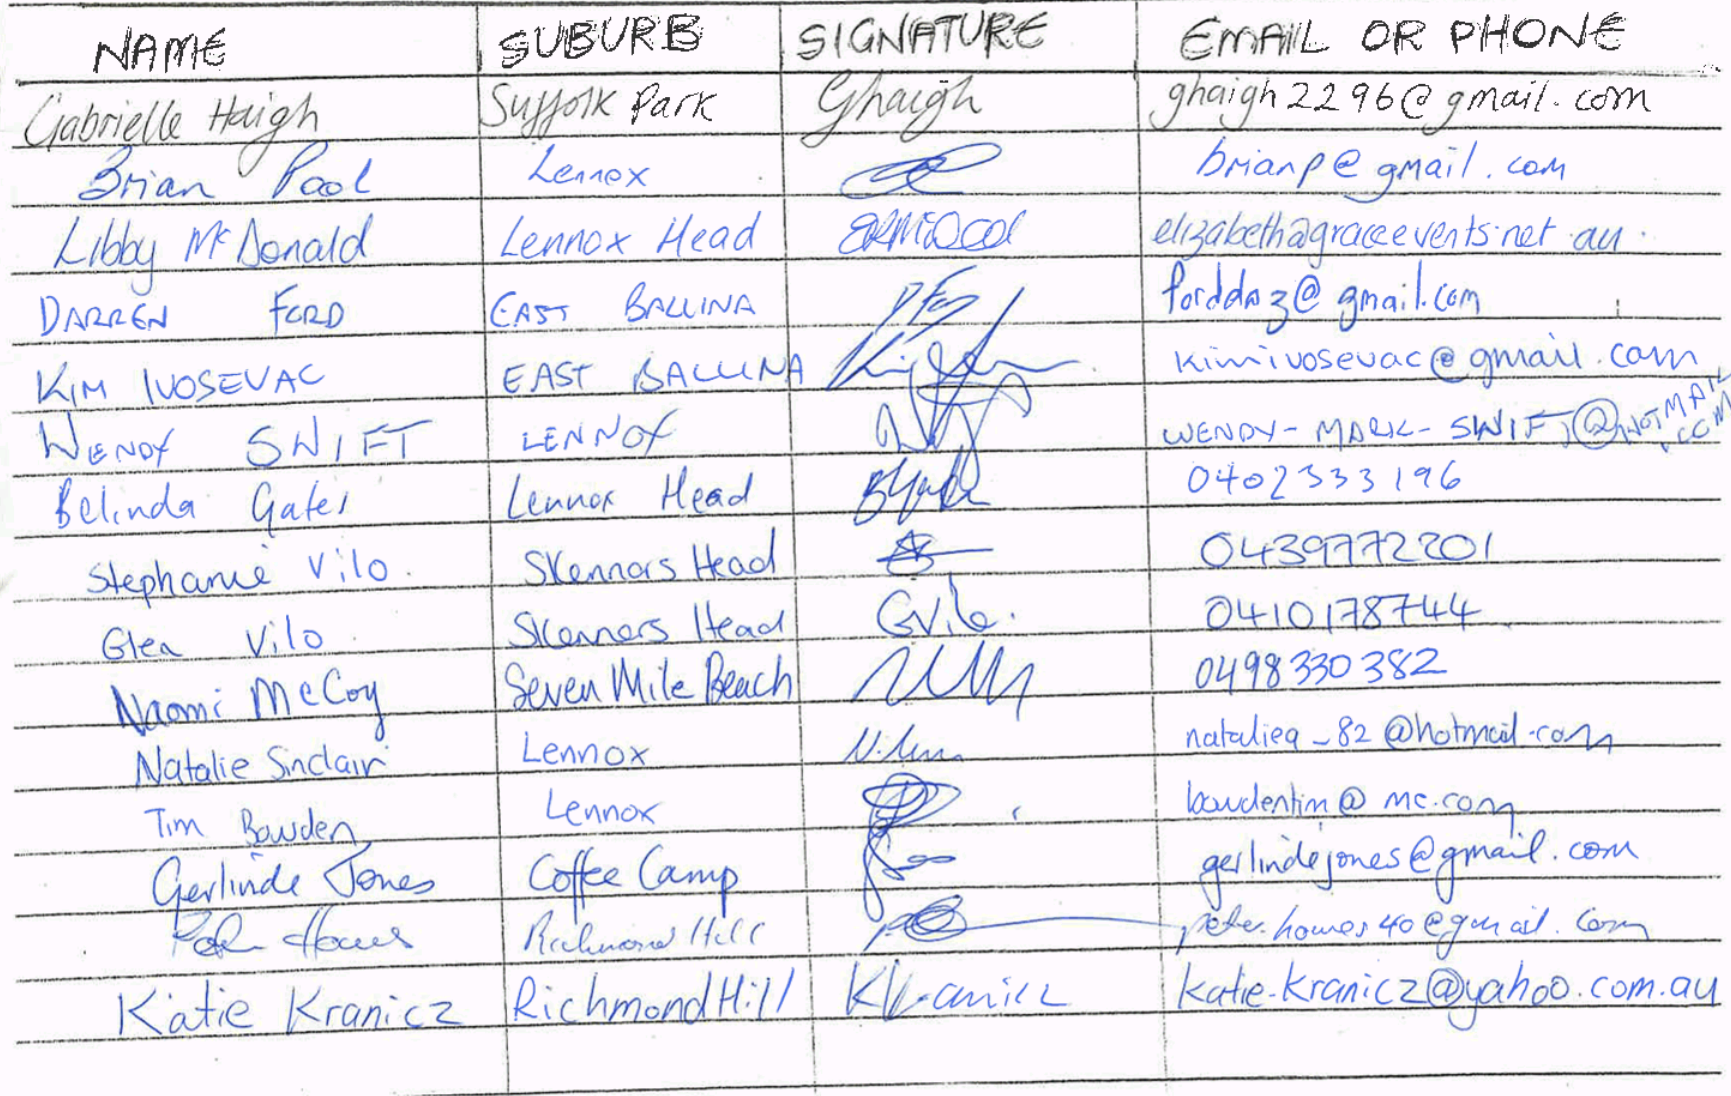 NAME SUBURB SIGNATURE EMAIL OR PHONE
Gabrielle Haigh Suffolk Park Ghaigh ghaigh2296@gmail.com
Brian Pool Lennox brianp@gmail.com
Libby McDonald Lennox Head elizabeth@graceevents.net.au
DARREN FORD EAST BALLINA DFord forddaz@gmail.com
KIM IVOSEVAC EAST BALLINA kimivosevac@gmail.com
WENDY SWIFT LENNOX WENDY-MARK-SWIFT@HOTMAIL.COM
Belinda Gates Lennox Head 0402333196
Stephanie Vilo. Skennars Head 0439772201
Glen Vilo. Skennars Head GVilo. 0410178744
Naomi McCoy Seven Mile Beach 0498330382
Natalie Sinclair Lennox nataliea_82@hotmail.com
Tim Bowden Lennox bowdentim@me.com
Gerlinde Jones Coffee Camp gerlindejones@gmail.com
Peter Howes Richmond Hill peter.howes40@gmail.com
Katie Kranicz Richmond Hill KKranicz katie-kranicz@yahoo.com.au